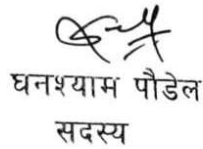 घनश्याम पौडेल
सदस्य